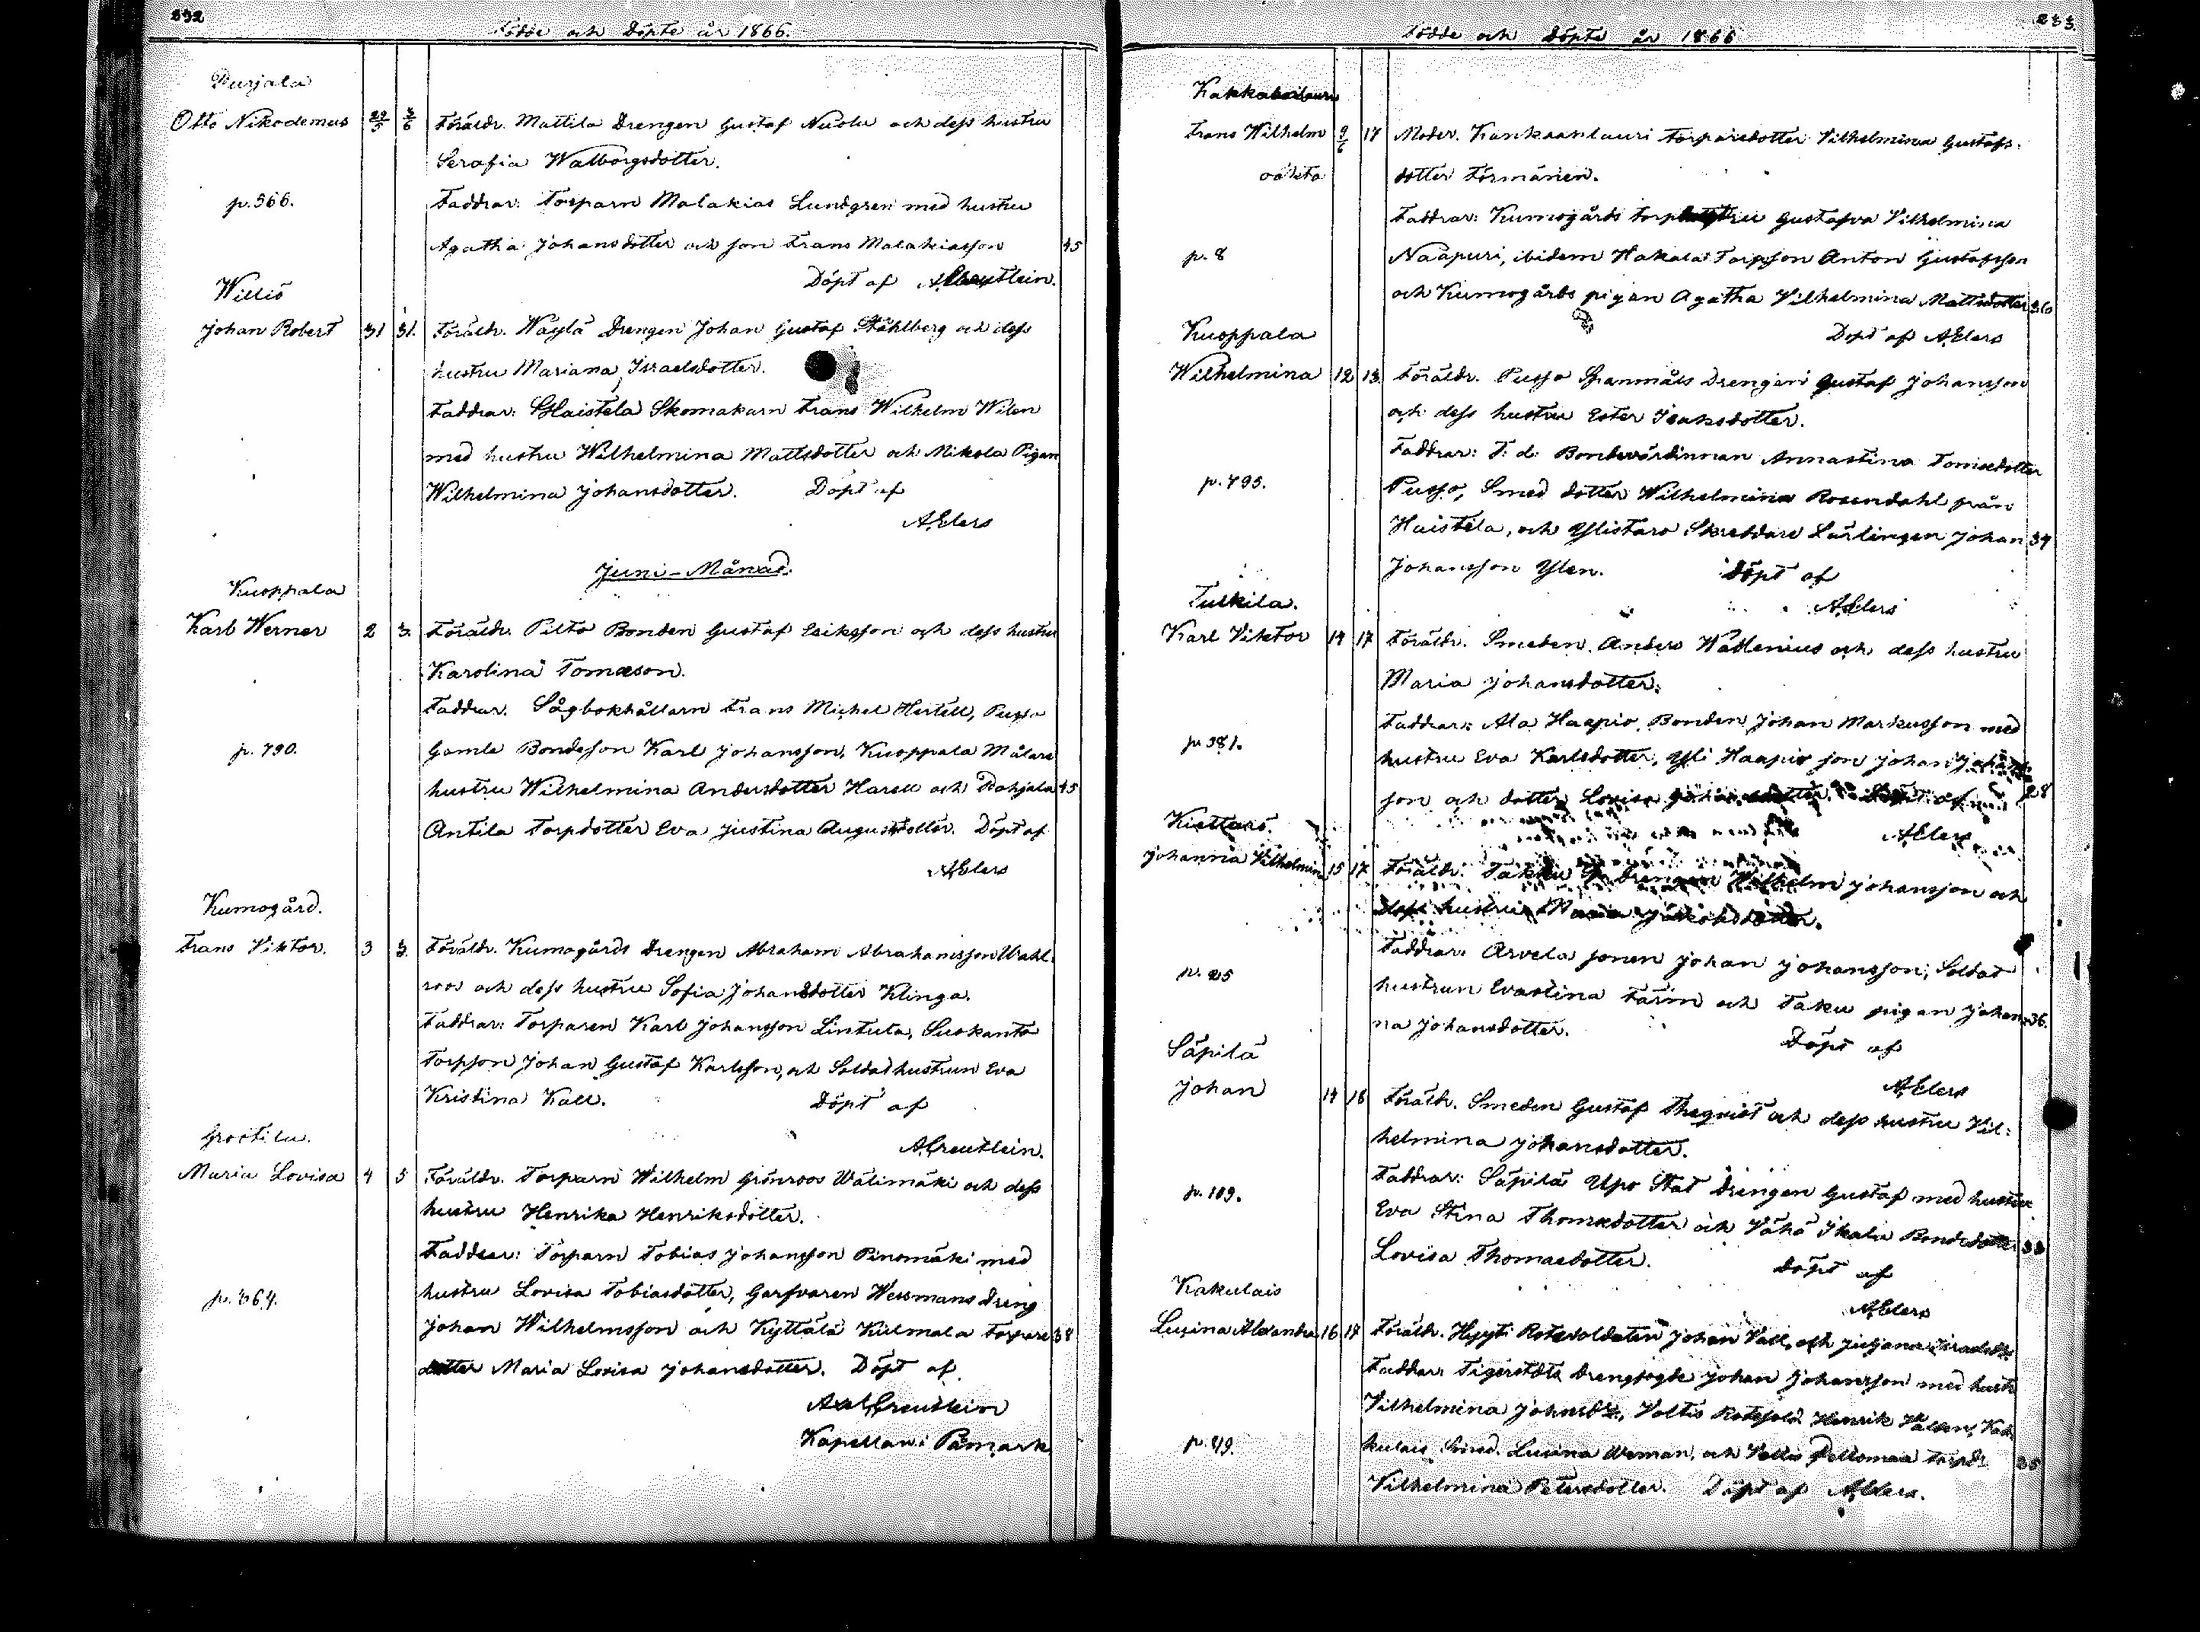 232
Födde och Döpte år 1866.
Purjala
Otto Nikodemus 29/5 3/6 Föräldr. Mattila Drengen Gustaf Nuolu och dess hustru
Serafia Walborgsdotter.
p. 566. Faddrar: Torparn Malakias Lundgren med hustru
Agatha Johansdotter och son Frans Malakiasson 45
Döpt af
Willio
Johan Robert 31 31. Föräldr. Näylä Drengen Johan Gustaf Ståhlberg och dess
hustru Mariana Israelsdotter.
Faddrar: Haistela Skomakarn Frans Wilhelm Wilen
med hustru Wilhelmina Mattsdotter och Mikola Pigan
Wilhelmina Johansdotter. Döpt af
AElers
Juni-Månad.
Kuoppala
Karl Werner 2 3. Föräldr. Pilto Bonden Gustaf Eriksson och dess hustru
Karolina Tomason.
Faddrar. Sågbokhållarn Frans Michel Hertell, Pusso
p. 790. Gamle Bondesson Karl Johansson, Kuoppala Målare
hustru Wilhelmina Andersdotter Harell och Pahjala 45
Antila Torpdotter Eva Justina Augustdotter. Döpt af
AElers
Kumogård.
Frans Viktor. 3 3. Föräldr. Kumogårds Drengen Abraham Abrahamsson Wahl-
roos och dess hustru Sofia Johansdotter Klinga.
Faddrar: Torparen Karl Johansson Lintula, Suokanto
Torpson Johan Gustaf Karlsson, och Soldathustrun Eva
Kristina Kall. Döpt af
ACreutlein.
Grootila.
Maria Lovisa 4 5 Föräldr. Torparn Wilhelm Grönroos Wälimäki och dess
hustru Henrika Henriksdotter.
Faddrar: Torparn Tobias Johansson Pinomäki med
p. 664. hustru Lovisa Tobiasdotter, Garfvaren Wessmans dreng
Johan Wilhelmsson och Kyttälä Kulmala Torpare 38
dotter Maria Lovisa Johansdotter. Döpt af
Axel Creutlein
Kapellan i Påmark
233.
Födde och Döpte år 1866
Frans Wilhelm 9/6 17 Moder. Kankaanlauri Torparedotter Vilhelmina Gustafs-
oäkta dotter Förmänen.
Faddrar: Kumogårds Gustafva Vilhelmina
p. 8 Naapuri, ibidem Hakala Torpson Anton Gustafsson
och Kumogårds pigan Agatha Vilhelmina Mattsdotter 36
Döpt af AElers
Kuoppala
Wilhelmina 12 13 Föräldr. Pusso Spanmåls Drengen Gustaf Johansson
och dess hustru Ester Isaksdotter.
Faddrar: F. d. Bondevärdinnan Annastina Tomasdotter
p. 795. Pusso, Smed dotter Wilhelmina Rosendahl från
Haistela, och Ylistaro Skreddare Lärlingen Johan 34
Johansson Ylen. Döpt af
AElers
Tulkila.
Karl Viktor 14 17 Föräldr. Smeden Anders Wadenius och dess hustru
Maria Johansdotter.
Faddrar: Ala Haapio Bonden Johan Markusson med
p. 381. hustru Eva Karlsdotter, Yli Haapio son Johan Johans-
son och dotter Lovisa 28
AElers
Johanna Vilhelmina 15 17 Föräldr. Drengen Wilhelm Johansson och
dess hustru Maria
Faddrar: Arvela sonen Johan Johansson, Soldat
p. 25 hustrun Evastina Färm och Taku pigan Johan- 36.
na Johansdotter. Döpt af
AElers
Säpilä
Johan 14 18 Föräldr. Smeden Gustaf Thegvist och dess hustru Vil-
helmina Johansdotter.
Faddrar: Säpilä Upo Stat Drengen Gustaf med hustru
p. 109. Eva Stina Thomasdotter och Vähä Ikala Bondedotter 33
Lovisa Thomasdotter. Döpt af
AElers
Kakulais
Lusina Alexandra 16 17 Föräldr. Hyyti Rotesoldaten Johan Vall, och Juliana
Faddrar: Tigerstedts Drengfogde Johan Johansson med hustr.
Vilhelmina Johansdr, Voltis Rotesold. Henrik
kulais Smed. Lusina och Torpdr 35
Vilhelmina Petersdotter. Döpt af AElers.